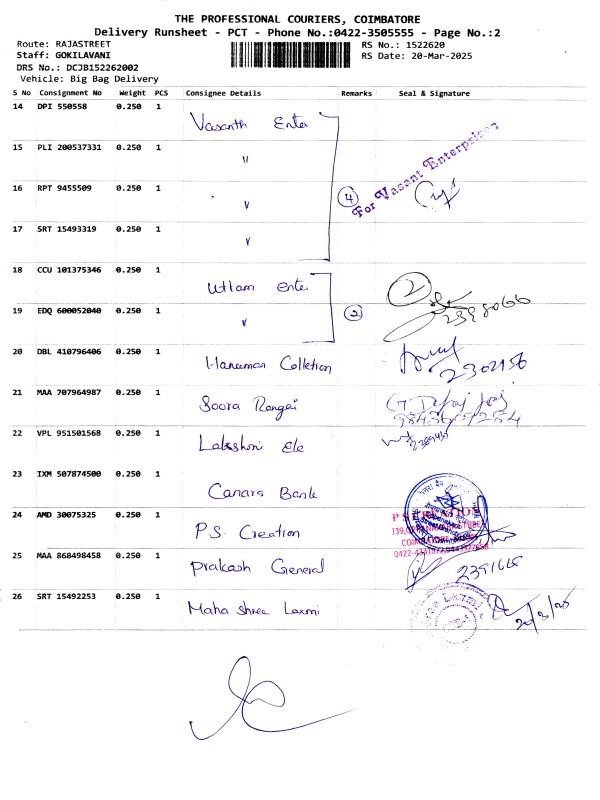 THE PROFESSIONAL COURIERS, COIMBATORE
Delivery Runsheet - PCT - Phone No.:0422-3505555 - Page No.:2
Route: RAJASTREET
RS No.: 1522620
Staff: GOKILAVANI
RS Date: 20-Mar-2025
DRS No.: DCJB152262002
Vehicle: Big Bag Delivery
S No Consignment No Weight PCS Consignee Details Remarks Seal & Signature
14 DPI 550558 0.250 1 Vasanth Enter
15 PLI 200537331 0.250 1 "
For Vasant Enterprises
16 RPT 9455509 0.250 1 " 4
17 SRT 15493319 0.250 1 "
18 CCU 101375346 0.250 1 Uttam Enter 2
19 EDQ 600052040 0.250 1 " 2 2398066
20 DBL 410796406 0.250 1 Hanuman Colletion 2302956
21 MAA 707964987 0.250 1 Soora Rangai
22 VPL 951501568 0.250 1 Lakshmi Ele
23 IXM 507874500 0.250 1 Canara Bank
24 AMD 30075325 0.250 1 P.S. Creation P S CREATION
25 MAA 868498458 0.250 1 Prakash General
26 SRT 15492253 0.250 1 Maha Shree Laxmi 20/3/25